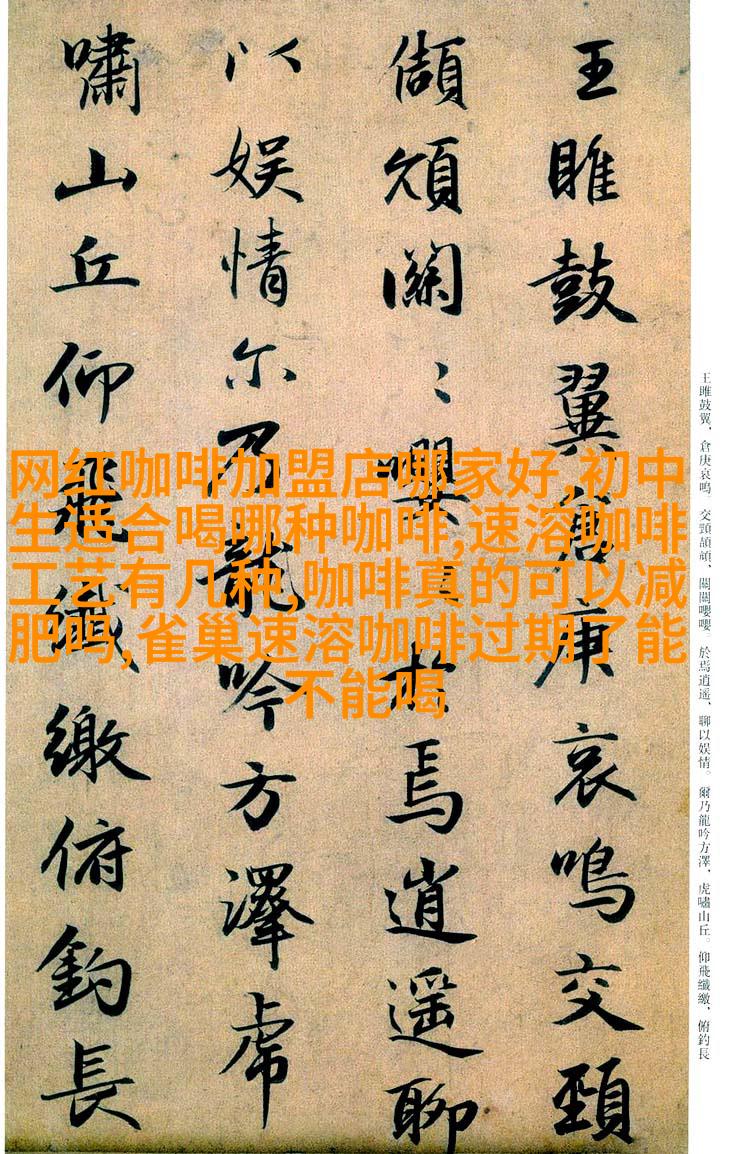 王雎鼓翼倉庚哀鳴交頸
頡頏關〻嚶〻於焉逍遥聊
以娱情尓乃龍吟方澤虎
嘯山丘仰飛纖繳俯釣長
王雎鼓翼、倉庚哀鳴。交頸頡頏、關關嚶嚶。於焉逍遥、聊以娱情。爾乃龍吟方澤、虎嘯山丘。仰飛纖繳、俯釣長
网红咖啡加盟店哪家好,初中
生适合喝哪种咖啡,速溶咖啡
工艺有几种,咖啡真的可以减
肥吗,雀巢速溶咖啡过期了能
不能喝